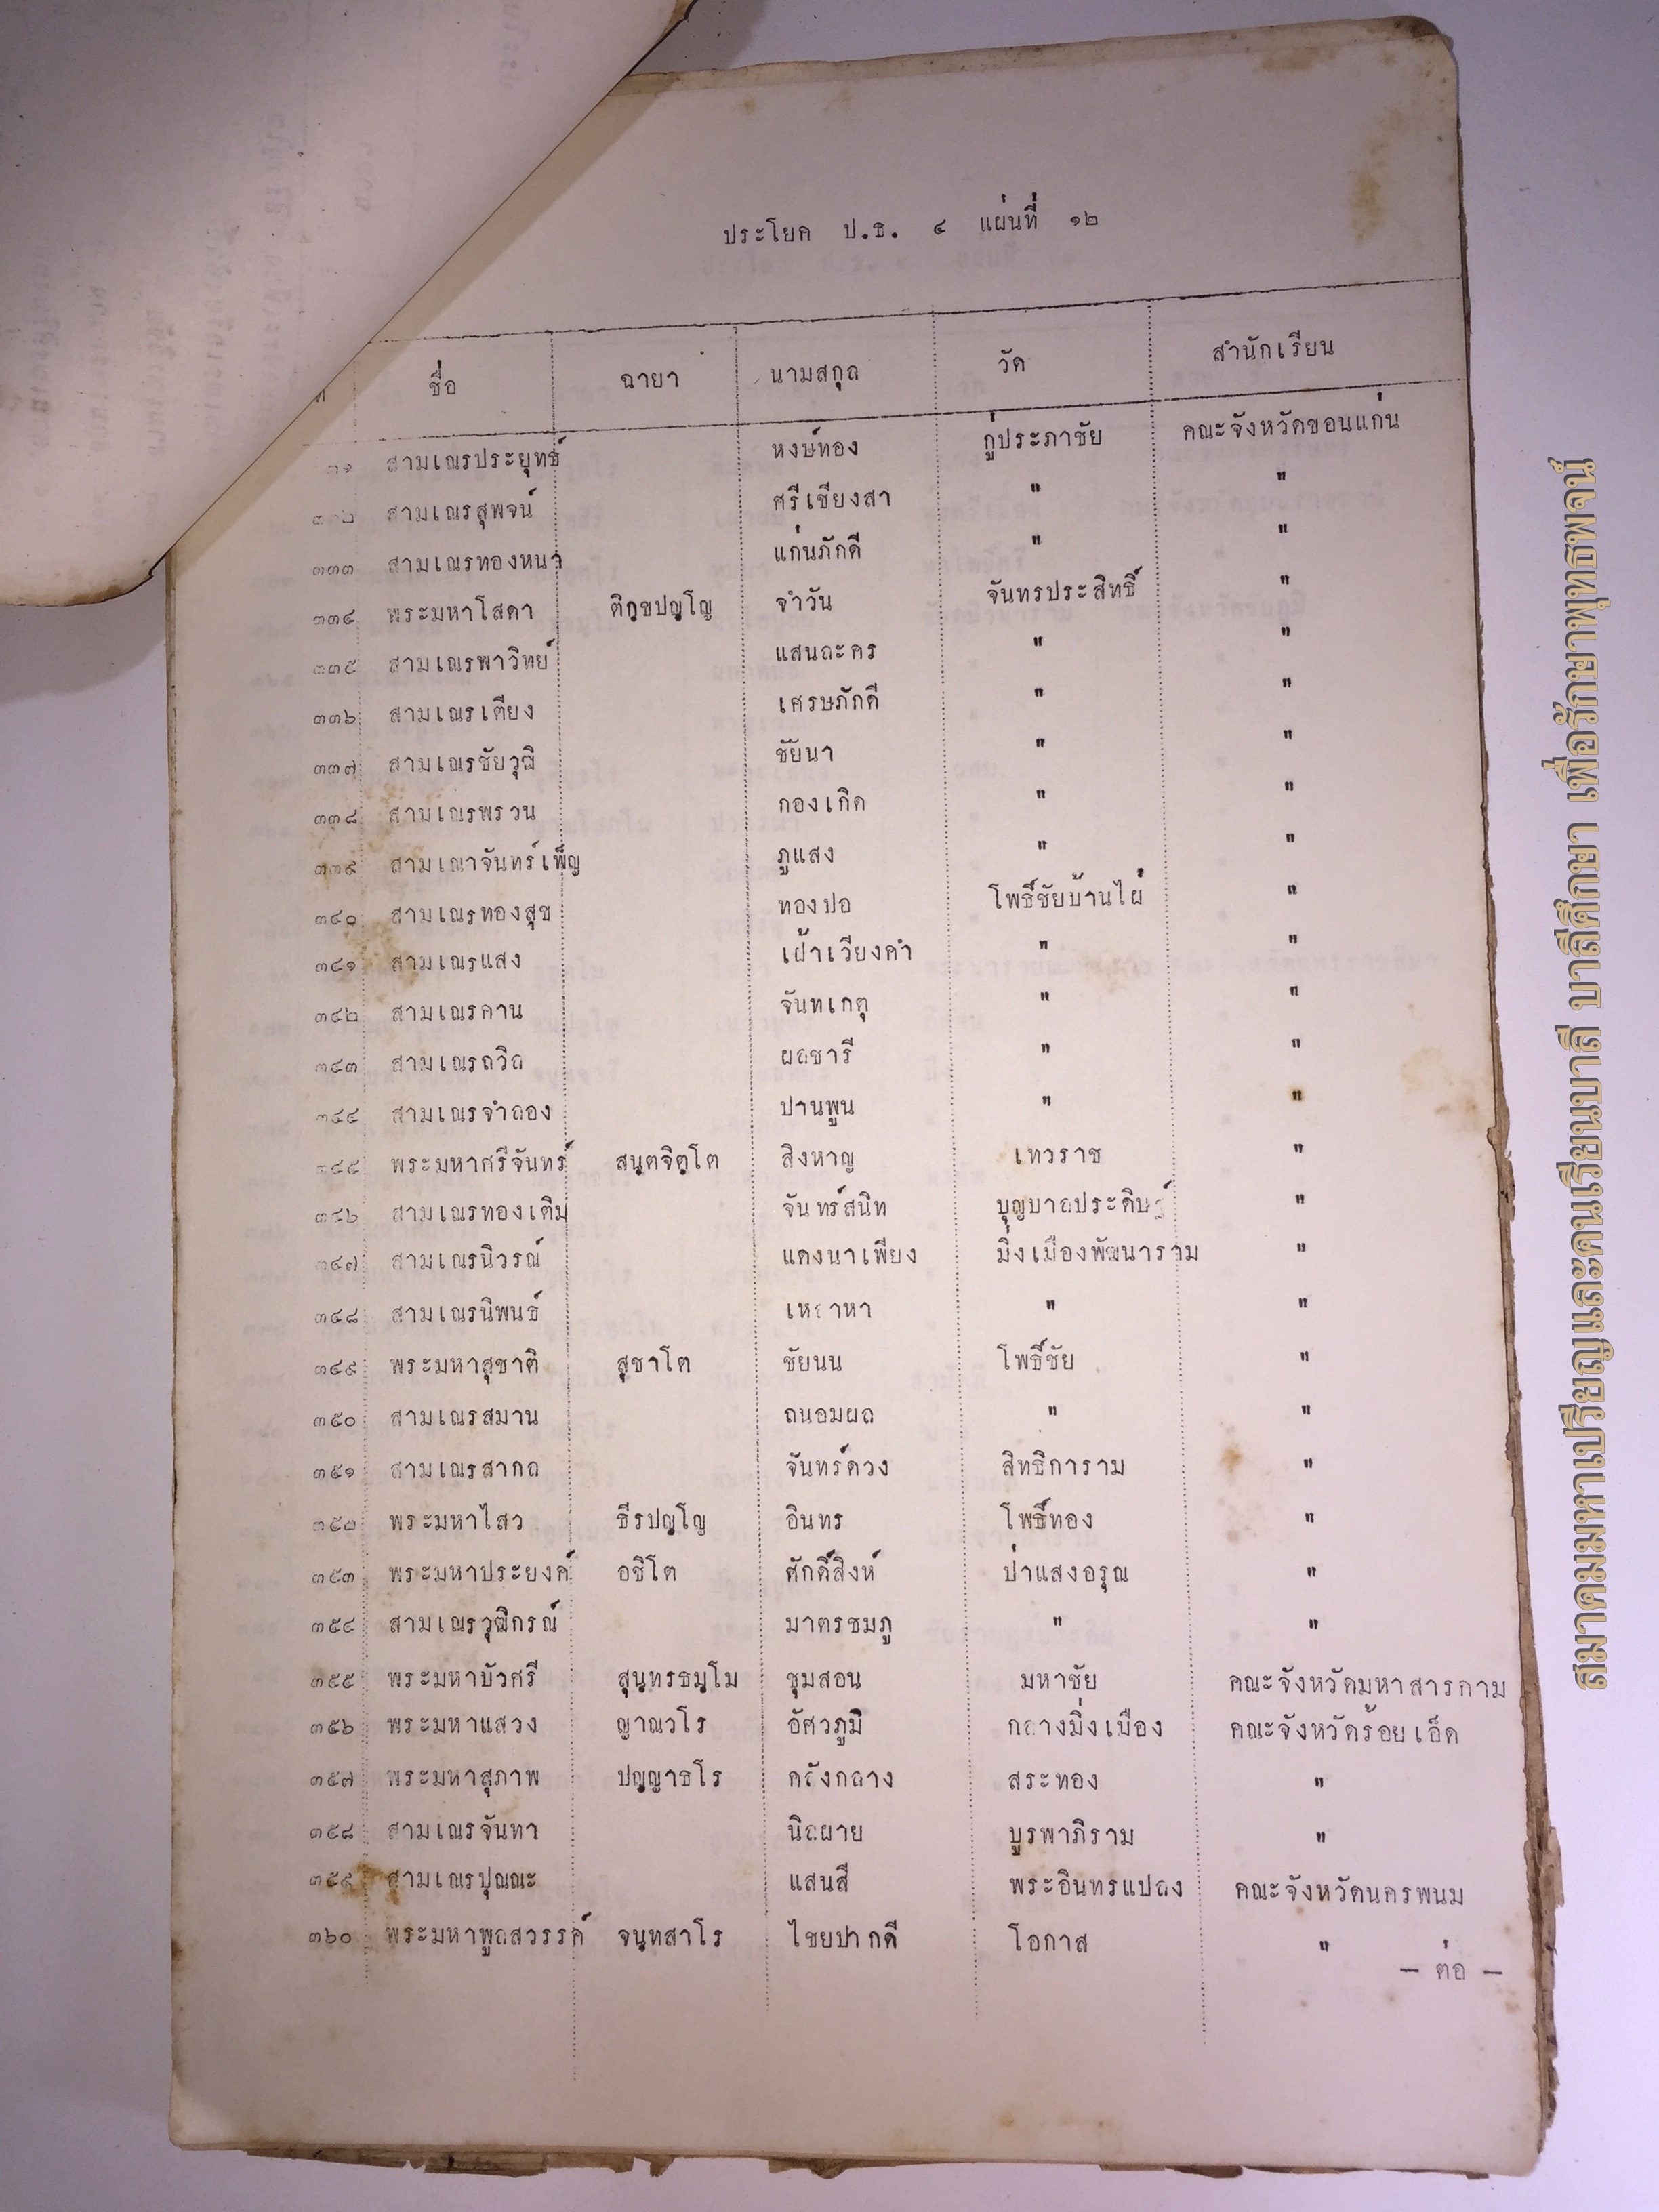 ประโยค ป.ธ. ๔ แผ่นที่ ๑๒
ที่ ชื่อ ฉายา นามสกุล วัด สำนักเรียน
๓๑ สามเณรประยุทธ์ หงษ์ทอง กู่ประภาชัย คณะจังหวัดขอนแก่น
๓๓๒ สามเณรสุพจน์ ศรีเชียงสา " "
๓๓๓ สามเณรทองหนา แก่นภักดี " "
๓๓๔ พระมหาโสดา ติกฺขปญฺโญ จำวัน จันทรประสิทธิ์ "
๓๓๕ สามเณรพาวิทย์ แสนละคร " "
๓๓๖ สามเณรเตียง เศรษภักดี " "
๓๓๗ สามเณรชัยวุฒิ ชัยนา " "
๓๓๘ สามเณรพรวน กองเกิด " "
๓๓๙ สามเณาจันทร์เพ็ญ ภูแสง " "
๓๔๐ สามเณรทองสุข ทองปอ โพธิ์ชัยบ้านไผ่ "
๓๔๑ สามเณรแสง เฝ้าเวียงคำ " "
๓๔๒ สามเณรคาน จันทเกตุ " "
๓๔๓ สามเณรถวิล ผลชารี " "
๓๔๔ สามเณรจำลอง ปานพูน " "
๓๔๕ พระมหาศรีจันทร์ สนฺตจิตฺโต สิงหาญ เทวราช "
๓๔๖ สามเณรทองเติม จันทร์สนิท บุญบาลประดิษฐ์ "
๓๔๗ สามเณรนิวรณ์ แดงนาเพียง มิ่งเมืองพัฒนาราม "
๓๔๘ สามเณรนิพนธ์ เหลาหา " "
๓๔๙ พระมหาสุชาติ สุชาโต ชัยนน โพธิ์ชัย "
๓๕๐ สามเณรสมาน ถนอมผล " "
๓๕๑ สามเณรสากล จันทร์ดวง สิทธิการาม "
๓๕๒ พระมหาไสว ธีรปญฺโญ อินทร โพธิ์ทอง "
๓๕๓ พระมหาประยงค์ อชิโต ศักดิ์สิงห์ ป่าแสงอรุณ "
๓๕๔ สามเณรวุฒิกรณ์ มาตรชมภู " "
๓๕๕ พระมหาบัวศรี สุนฺทรธมฺโม ชุมสอน มหาชัย คณะจังหวัดมหาสารคาม
๓๕๖ พระมหาแสวง ญาณวโร อัศวภูมิ กลางมิ่งเมือง คณะจังหวัดร้อยเอ็ด
๓๕๗ พระมหาสุภาพ ปญฺญาธโร คลังกลาง สระทอง "
๓๕๘ สามเณรจันทา นิลผาย บูรพาภิราม "
๓๕๙ สามเณรปุณณะ แสนสี พระอินทรแปลง คณะจังหวัดนครพนม
๓๖๐ พระมหาพูลสวรรค์ จนฺทสาโร ไชยปากดี โอกาส "
— ต่อ —
สมาคมมหาเปรียญและคนเรียนบาลี บาลีศึกษา เพื่อรักษาพุทธพจน์